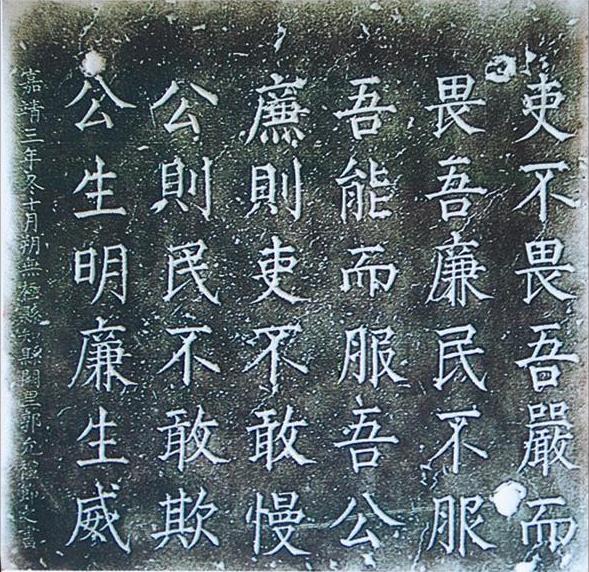 吏不畏吾嚴而
畏吾廉民不服
吾能而服吾公
廉則吏不敢慢
公則民不敢欺
公生明廉生威
嘉靖三年冬十月朔無極